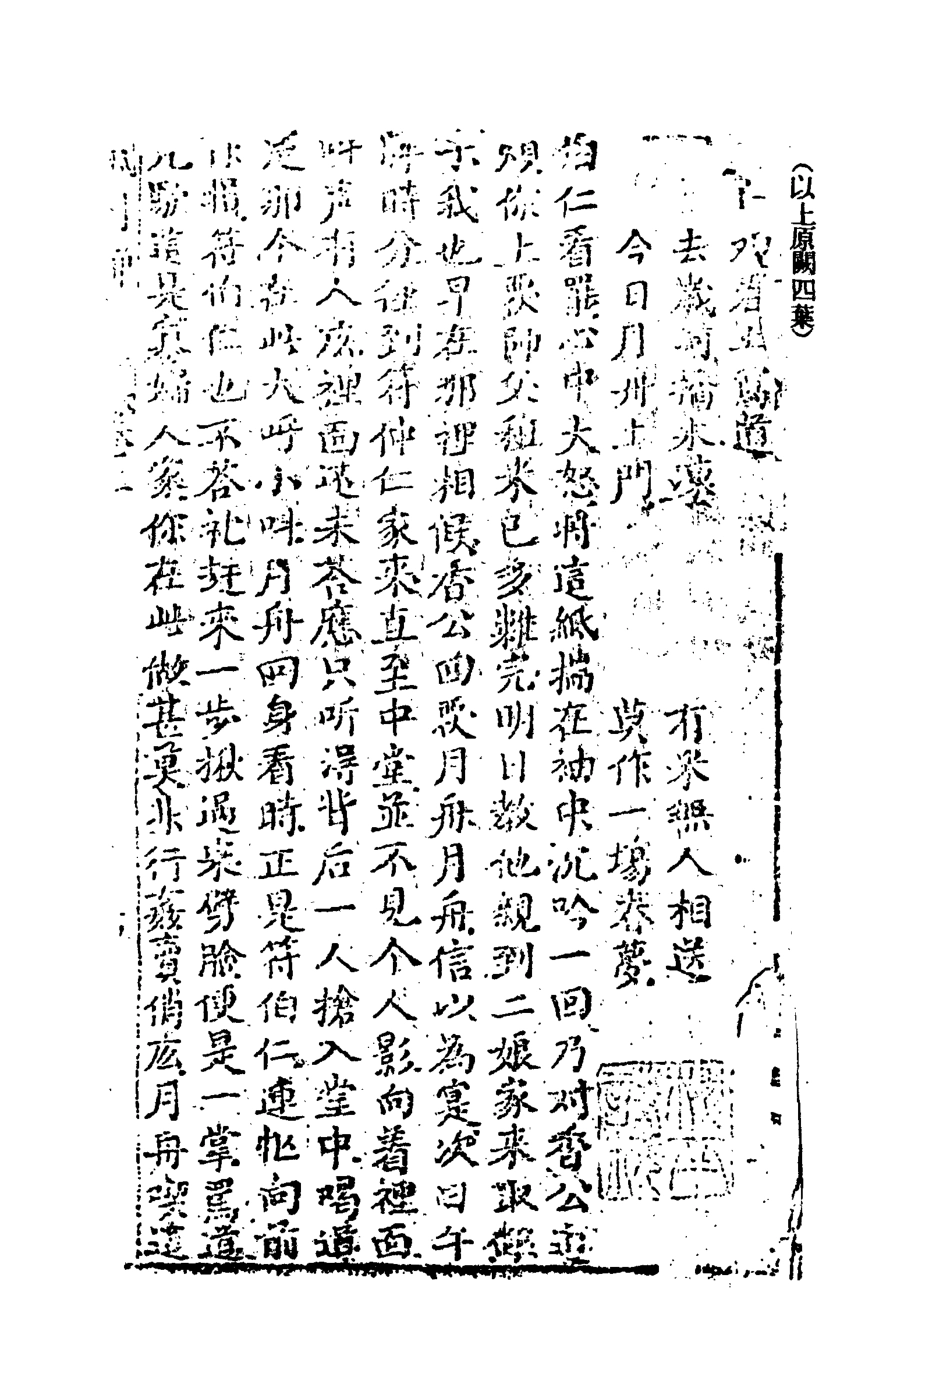 （以上原闕四葉）
道
去歲 插禾 有米無人相送
今日月舟上門 莫作一場春夢
伯仁看罷心中大怒將這紙揣在袖中沉吟一回乃对香公道
煩你上覆師父種米已多難完明日教他親到二娘家來取
我也早在那裡相候香公回覆月舟月舟信以為寔次日午
時分徑到符仲仁家來直至中堂並不見个人影向着裡面
声有人庅裡面還未荅應只听得背后一人搶入堂中喝道
那个在此大呼小呌月舟回身看時正是符伯仁連忙向前
符伯仁也不荅礼赶来一步揪過來劈臉便是一掌罵道
驢這是寡婦人家你在此做甚莫非行姦賣俏庅月舟喫這